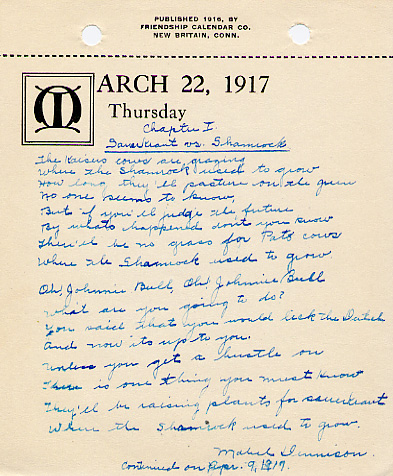 PUBLISHED 1916, BY
FRIENDSHIP CALENDAR CO.
NEW BRITAIN, CONN.
MARCH 22, 1917
Thursday
Chapter I.
Sauerkraut vs. Shamrock
The Kaisers cows are grazing
Where the Shamrock used to grow
How long they'll pasture on the green
No one seems to know,
But if you'll judge the future
By whats happened don't you know
There'll be no grass for Pats cows
Where the Shamrock used to grow.
Oh, Johnnie Bull Oh, Johnnie Bull
What are you going to do?
You said that you would lick the Dutch
And now its up to you.
Unless you get a hustle on
There is one thing you must know
They'll be raising plants for sauerkraut
Where the Shamrock used to grow.
Mabel Dennison.
Continued on Apr. 9, 1917.